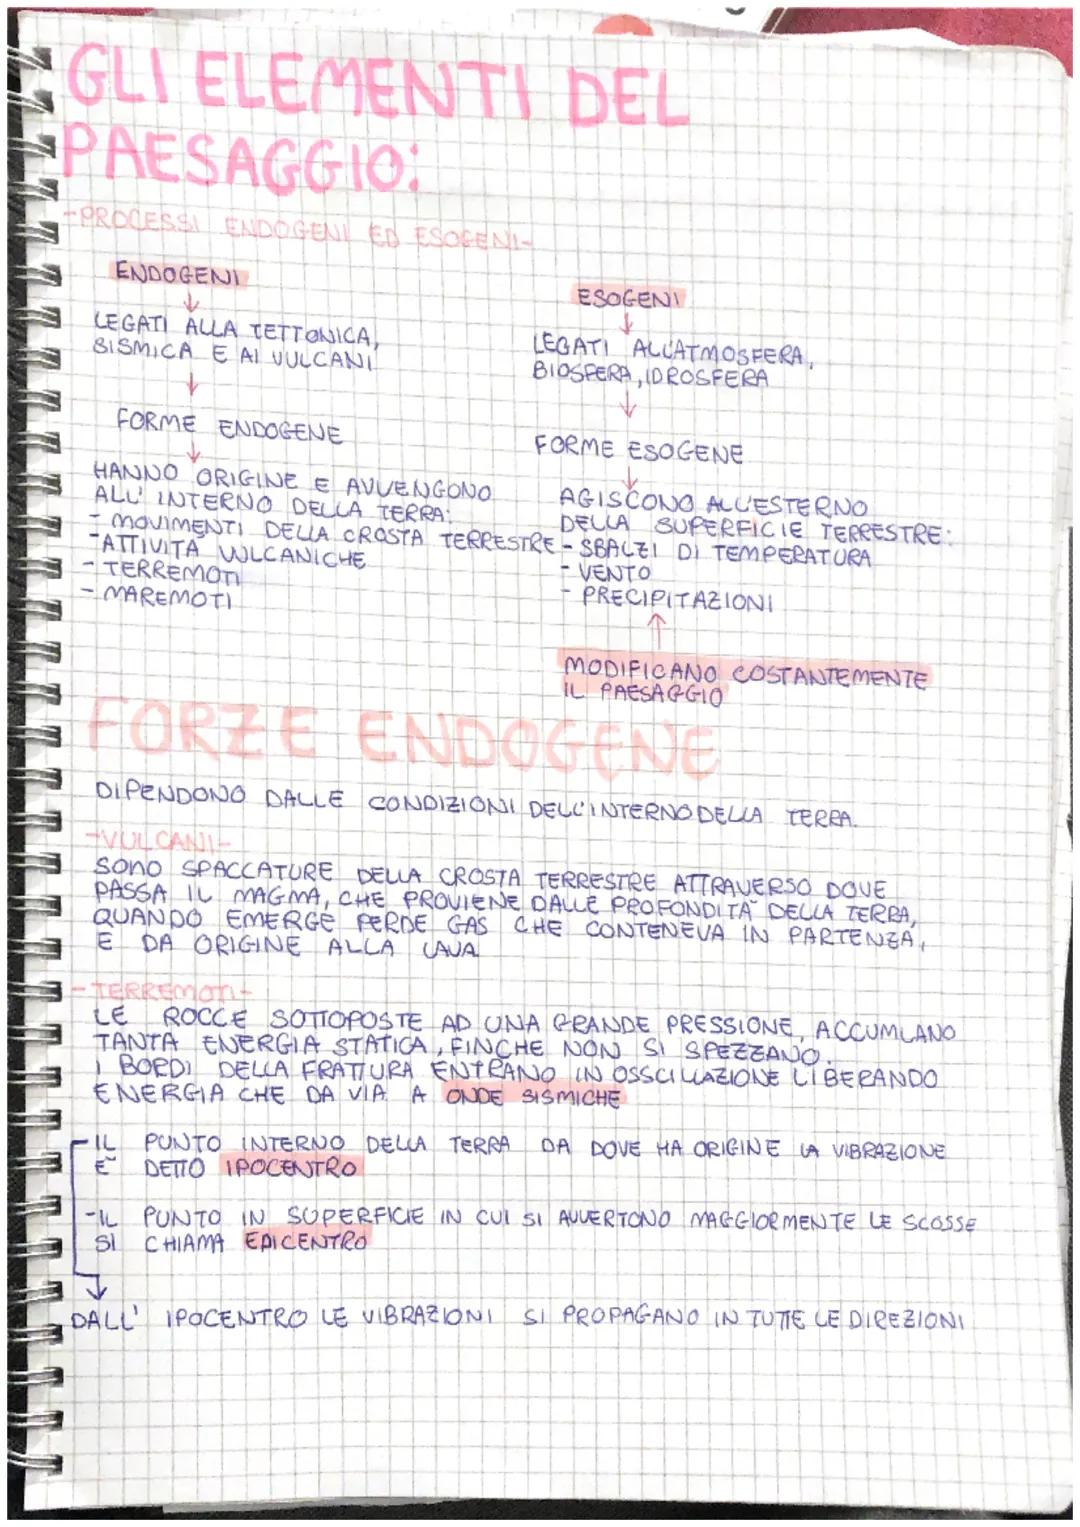 GLI ELEMENTI DEL
PAESAGGIO:
-PROCESSI ENDOGENI ED ESOGENI-
ENDOGENI
LEGATI ALLA TETTONICA,
SISMICA E AI VULCANI
FORME ENDOGENE
HANNO ORIGINE E AVVENGONO
ALL' INTERNO DELLA TERRA:
- MOVIMENTI DELLA CROSTA TERRESTRE
- ATTIVITÀ VULCANICHE
- TERREMOTI
- MAREMOTI
ESOGENI
LEGATI ALL'ATMOSFERA,
BIOSFERA, IDROSFERA
FORME ESOGENE
AGISCONO ALL'ESTERNO
DELLA SUPERFICIE TERRESTRE:
- SBALZI DI TEMPERATURA
- VENTO
- PRECIPITAZIONI
MODIFICANO COSTANTEMENTE
IL PAESAGGIO
FORZE ENDOGENE
DIPENDONO DALLE CONDIZIONI DELL'INTERNO DELLA TERRA.
-VULCANI-
SONO SPACCATURE DELLA CROSTA TERRESTRE ATTRAVERSO DOVE
PASSA IL MAGMA, CHE PROVIENE DALLE PROFONDITÀ DELLA TERRA,
QUANDO EMERGE PERDE GAS CHE CONTENEVA IN PARTENZA,
E DA ORIGINE ALLA LAVA
-TERREMOTI-
LE ROCCE SOTTOPOSTE AD UNA GRANDE PRESSIONE, ACCUMLANO
TANTA ENERGIA STATICA, FINCHE NON SI SPEZZANO.
I BORDI DELLA FRATTURA ENTRANO IN OSSCILLAZIONE LIBERANDO
ENERGIA CHE DA VIA A ONDE SISMICHE
-IL PUNTO INTERNO DELLA TERRA DA DOVE HA ORIGINE LA VIBRAZIONE
È DETTO IPOCENTRO
-IL PUNTO IN SUPERFICIE IN CUI SI AVVERTONO MAGGIORMENTE LE SCOSSE
SI CHIAMA EPICENTRO
DALL' IPOCENTRO LE VIBRAZIONI SI PROPAGANO IN TUTTE LE DIREZIONI